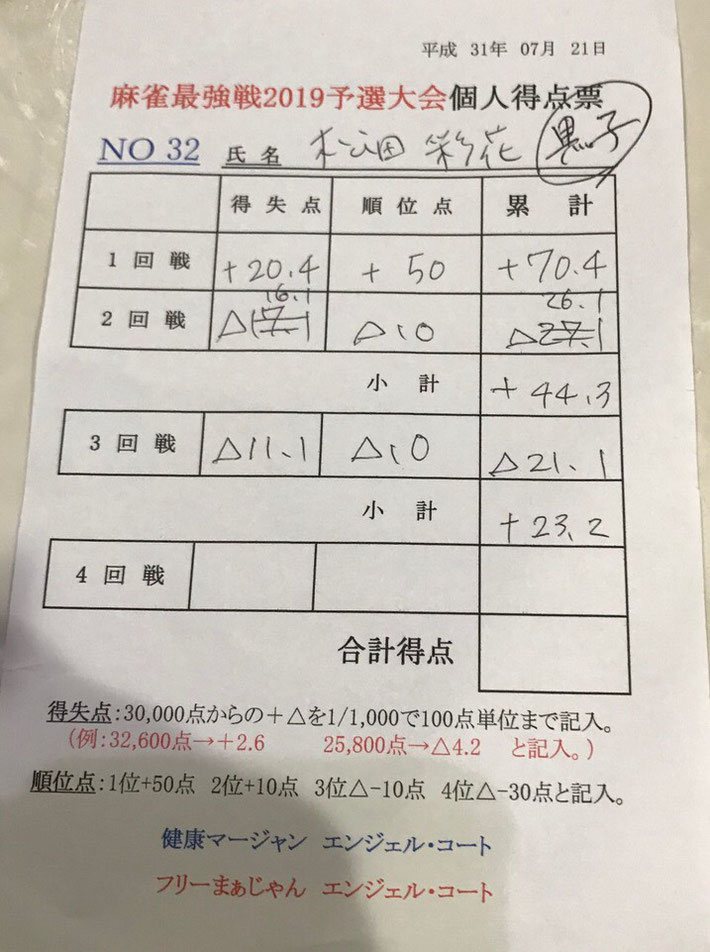 平成 31年 07月 21日
麻雀最強戦2019予選大会個人得点票
NO 32 氏名 松田 彩花 黒子
得失点 順位点 累計
1回戦 +20.4 +50 +70.4
16.1 26.1
2回戦 △17.1 △10 △27.1
小計 +44.3
3回戦 △11.1 △10 △21.1
小計 +23.2
4回戦
合計得点
得失点:30,000点からの+△を1/1,000で100点単位まで記入。
(例:32,600点→+2.6 25,800点→△4.2 と記入。)
順位点:1位+50点 2位+10点 3位△-10点 4位△-30点と記入。
健康マージャン エンジェル・コート
フリーまぁじゃん エンジェル・コート